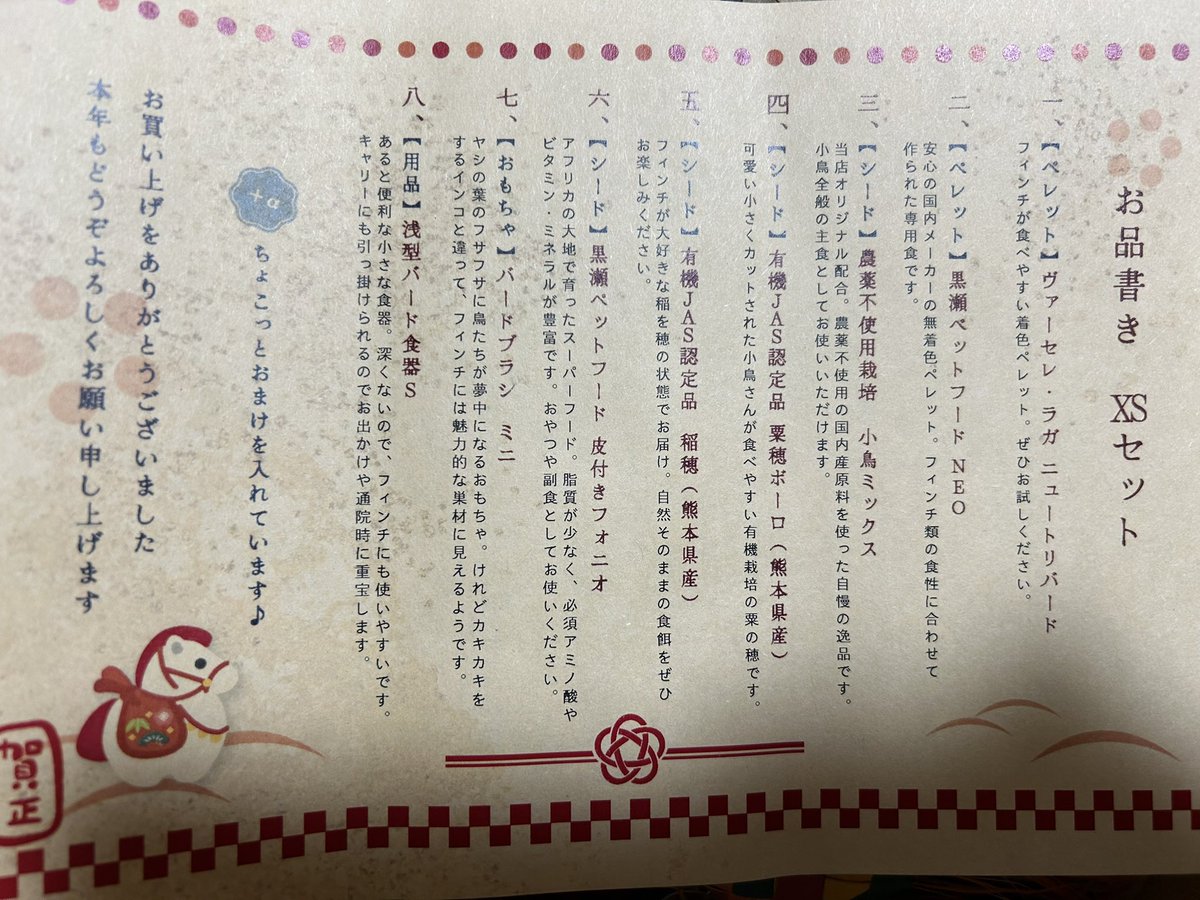 お品書き　XSセット
一、【ペレット】ヴァーセレ・ラガ ニュートリバード
フィンチが食べやすい着色ペレット。ぜひお試しください。
二、【ペレット】黒瀬ペットフード NEO
安心の国内メーカーの無着色ペレット。フィンチ類の食性に合わせて
作られた専用食です。
三、【シード】農薬不使用栽培　小鳥ミックス
当店オリジナル配合。農薬不使用の国内産原料を使った自慢の逸品です。
小鳥全般の主食としてお使いいただけます。
四、【シード】有機JAS認定品 粟穂ボーロ（熊本県産）
可愛い小さくカットされた小鳥さんが食べやすい有機栽培の粟の穂です。
五、【シード】有機JAS認定品　稲穂（熊本県産）
フィンチが大好きな稲を穂の状態でお届け。自然そのままの食餌をぜひ
お楽しみください。
六、【シード】黒瀬ペットフード 皮付きフォニオ
アフリカの大地で育ったスーパーフード。脂質が少なく、必須アミノ酸や
ビタミン・ミネラルが豊富です。おやつや副食としてお使いください。
七、【おもちゃ】バードブラシ　ミニ
ヤシの葉のフサフサに鳥たちが夢中になるおもちゃ。けれどカキカキを
するインコと違って、フィンチには魅力的な巣材に見えるようです。
八、【用品】浅型バード食器S
あると便利な小さな食器。深くないので、フィンチにも使いやすいです。
キャリーにも引っ掛けられるのでお出かけや通院時に重宝します。
+α ちょこっとおまけを入れています♪
お買い上げをありがとうございました
本年もどうぞよろしくお願い申し上げます
賀正